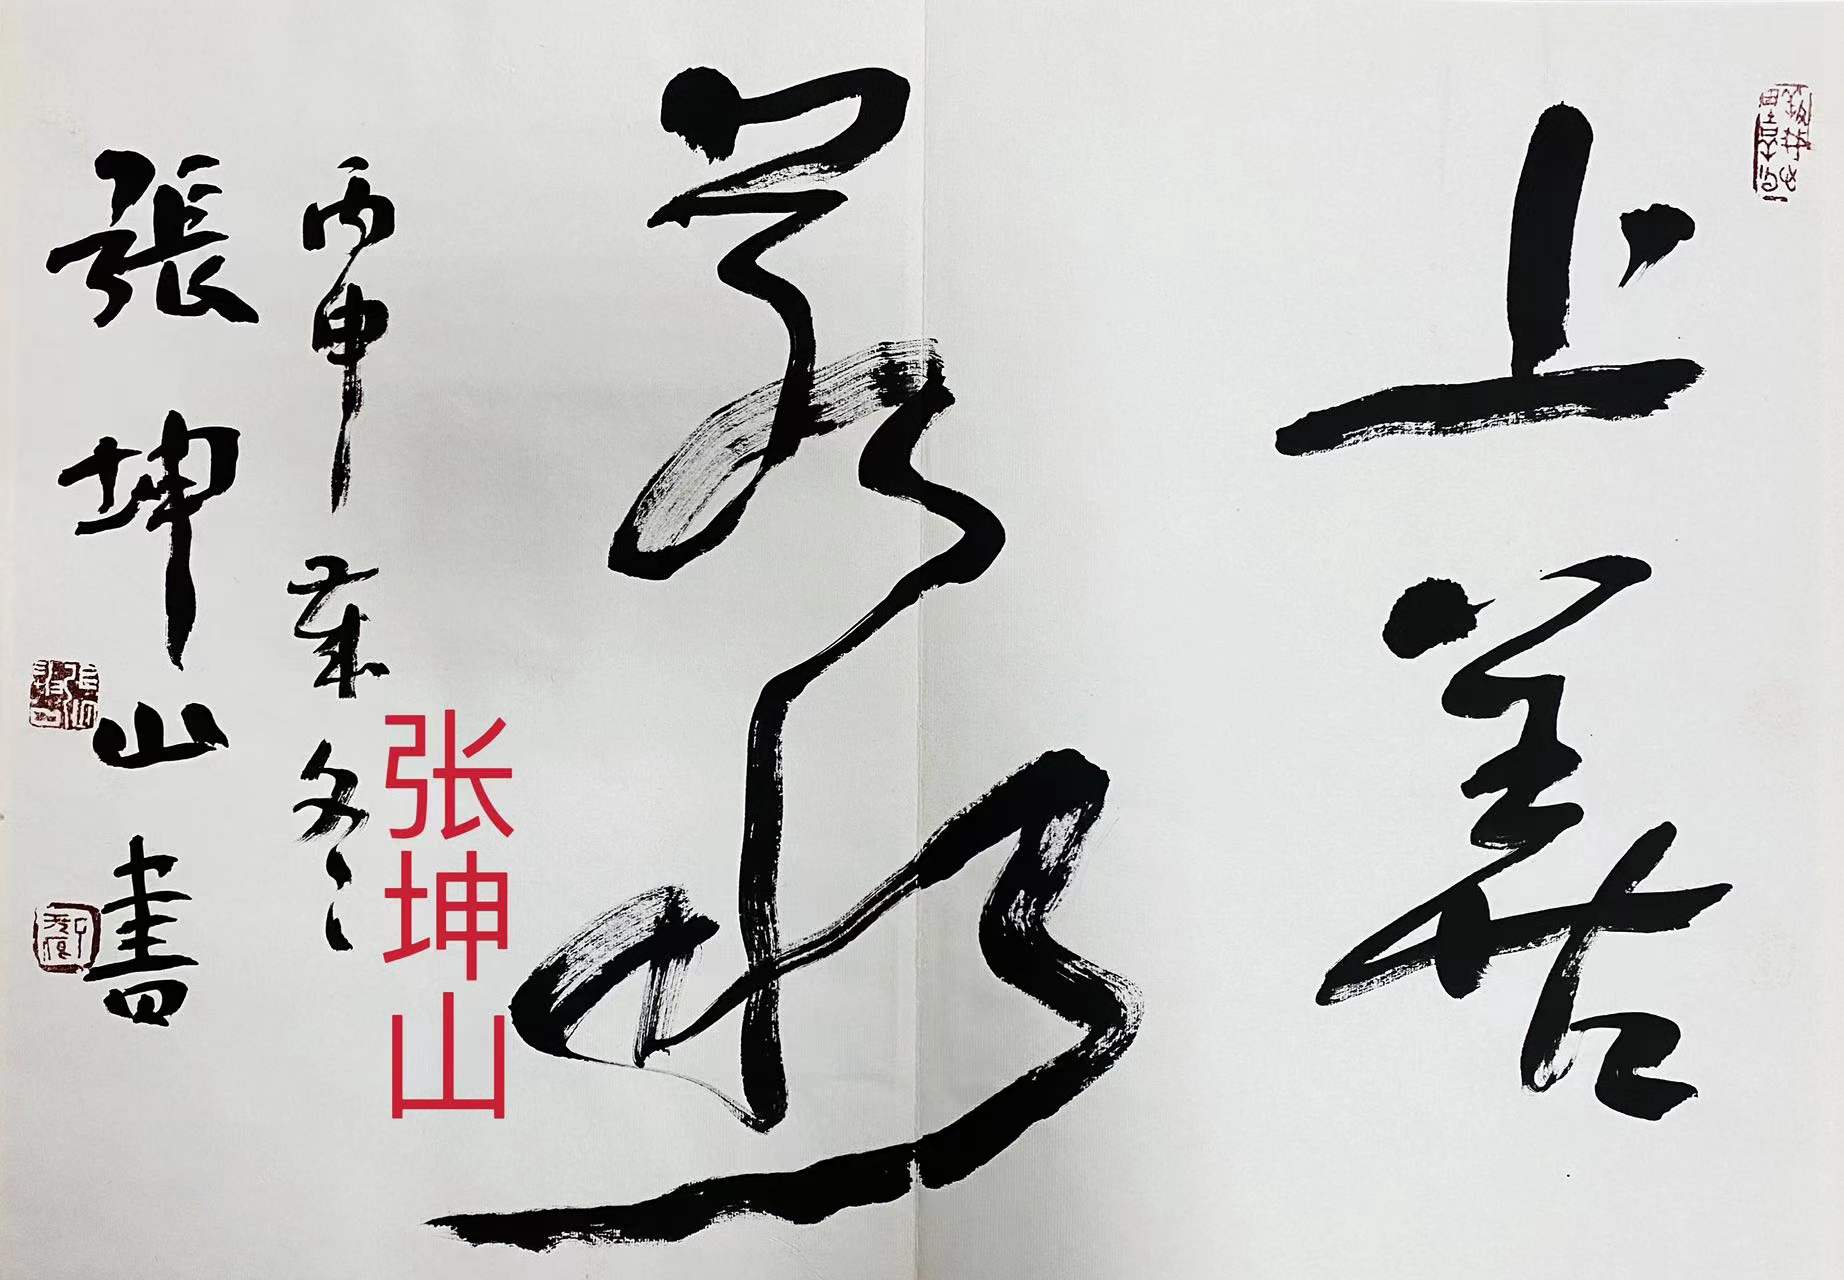 上善
若水
丙申嚴冬
張坤山書
张坤山